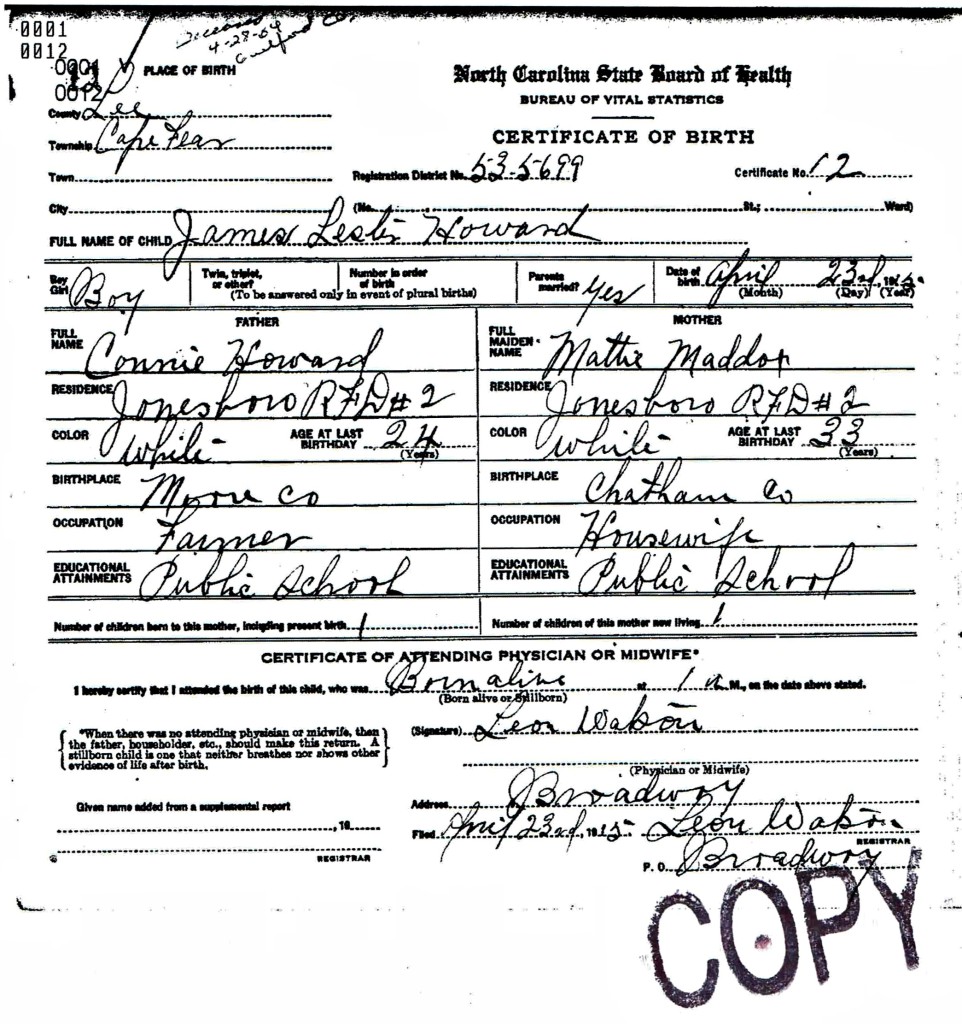 0001
0012
0001
0012
Deceased
4-28-64
Guilford Co.
PLACE OF BIRTH
North Carolina State Board of Health
BUREAU OF VITAL STATISTICS
County Lee
CERTIFICATE OF BIRTH
Township Cape Fear
Town Registration District No. 53-5699 Certificate No. 12
City (No. St.; Ward)
FULL NAME OF CHILD James Leslie Howard
Boy Girl Boy Twin, triplet, or other? Number in order of birth (To be answered only in event of plural births) Parents married? Yes Date of birth April 23rd, 1915
(Month) (Day) (Year)
FATHER MOTHER
FULL NAME Connie Howard FULL MAIDEN NAME Mattie Maddox
RESIDENCE Jonesboro RFD # 2 RESIDENCE Jonesboro RFD # 2
COLOR White AGE AT LAST BIRTHDAY 24 (Years) COLOR White AGE AT LAST BIRTHDAY 33 (Years)
BIRTHPLACE Moore Co BIRTHPLACE Chatham Co
OCCUPATION Farmer OCCUPATION Housewife
EDUCATIONAL ATTAINMENTS Public School EDUCATIONAL ATTAINMENTS Public School
Number of children born to this mother, including present birth 1 Number of children of this mother now living 1
CERTIFICATE OF ATTENDING PHYSICIAN OR MIDWIFE*
I hereby certify that I attended the birth of this child, who was Born alive at 1 a M., on the date above stated.
(Born alive or Stillborn)
*When there was no attending physician or midwife, then
the father, householder, etc., should make this return. A
stillborn child is one that neither breathes nor shows other
evidence of life after birth.
(Signature) Leon
(Physician or Midwife)
Given name added from a supplemental report
Address Broadway
, 19
Filed April 23rd, 1915 Leon
REGISTRAR REGISTRAR
P. O. Broadway
COPY